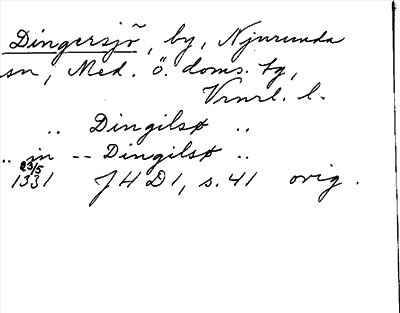 Dingersjö, by, Njurunda
sn, Med. ö. doms. tg,
Vrnrl. l.
.. Dingilsø ..
.. jn -- Dingilsø ..
23/5
1331 JHD1, s. 41 orig.